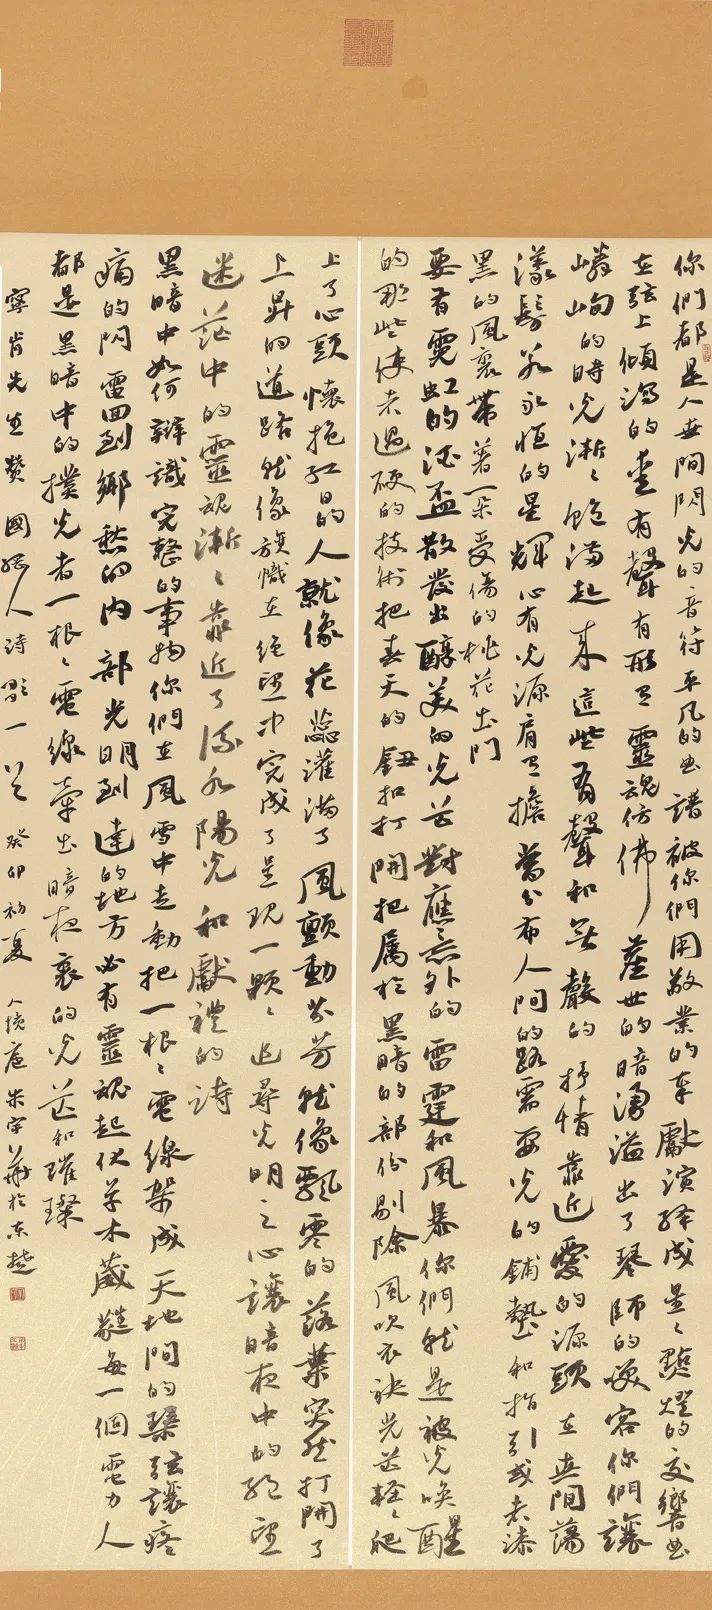 你們都是人世間閃光的音符平凡的曲譜被你們用敬業的奉獻演繹成星々點燈的交響曲
在弦上傾瀉的連有聲有形有靈魂仿佛塵世的暗湧溢出了琴師的笑容你們讓
嶙峋的時光漸々飽滿起來這些有聲和無聲的抒情靠近愛的源頭在其間蕩
漾鬢若永恒的星輝心有光源肩有擔當分布人間的路需要光的鋪墊和指引或者漆
黑的風裏帶著一朵受傷的桃花出門
要有霓虹的酒盃散發出醇美的光芒對應意外的雷霆和風暴你們就是被光喚醒
的那些使者過硬的技術把春天的鈕扣打開把屬於黑暗的部份剔除風吹衣袂光芒輕々爬
上了心頭懷抱紅日的人就像花蕊灌滿了風顫動芬芳就像飄零的落葉突然打開了
上昇的道路就像旗幟在絕望中完成了呈現一顆々追尋光明之心讓暗夜中的絕望
迷茫中的靈魂漸々靠近了流水陽光和獻禮的詩
黑暗中如何辯識完整的事物你們在風雪中走動把一根々電線架成天地間的琴弦讓疼
痛的閃雷回到鄉愁的内部光明到達的地方必有靈魂起伏草木葳蕤每一個電力人
都是黑暗中的撲光者一根々電線牽出暗夜裏的光芒和璀璨
寧肯先生贊國網人詩影一首癸卯初夏 朱宇華於東楚